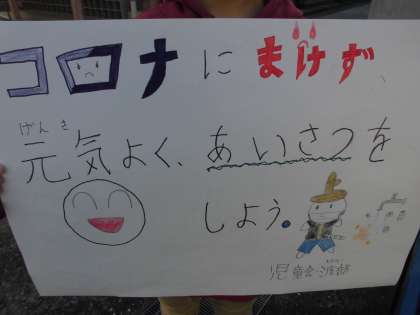 コロナにまけず、
げんき
元気よく、あいさつを
しよう。
児童会